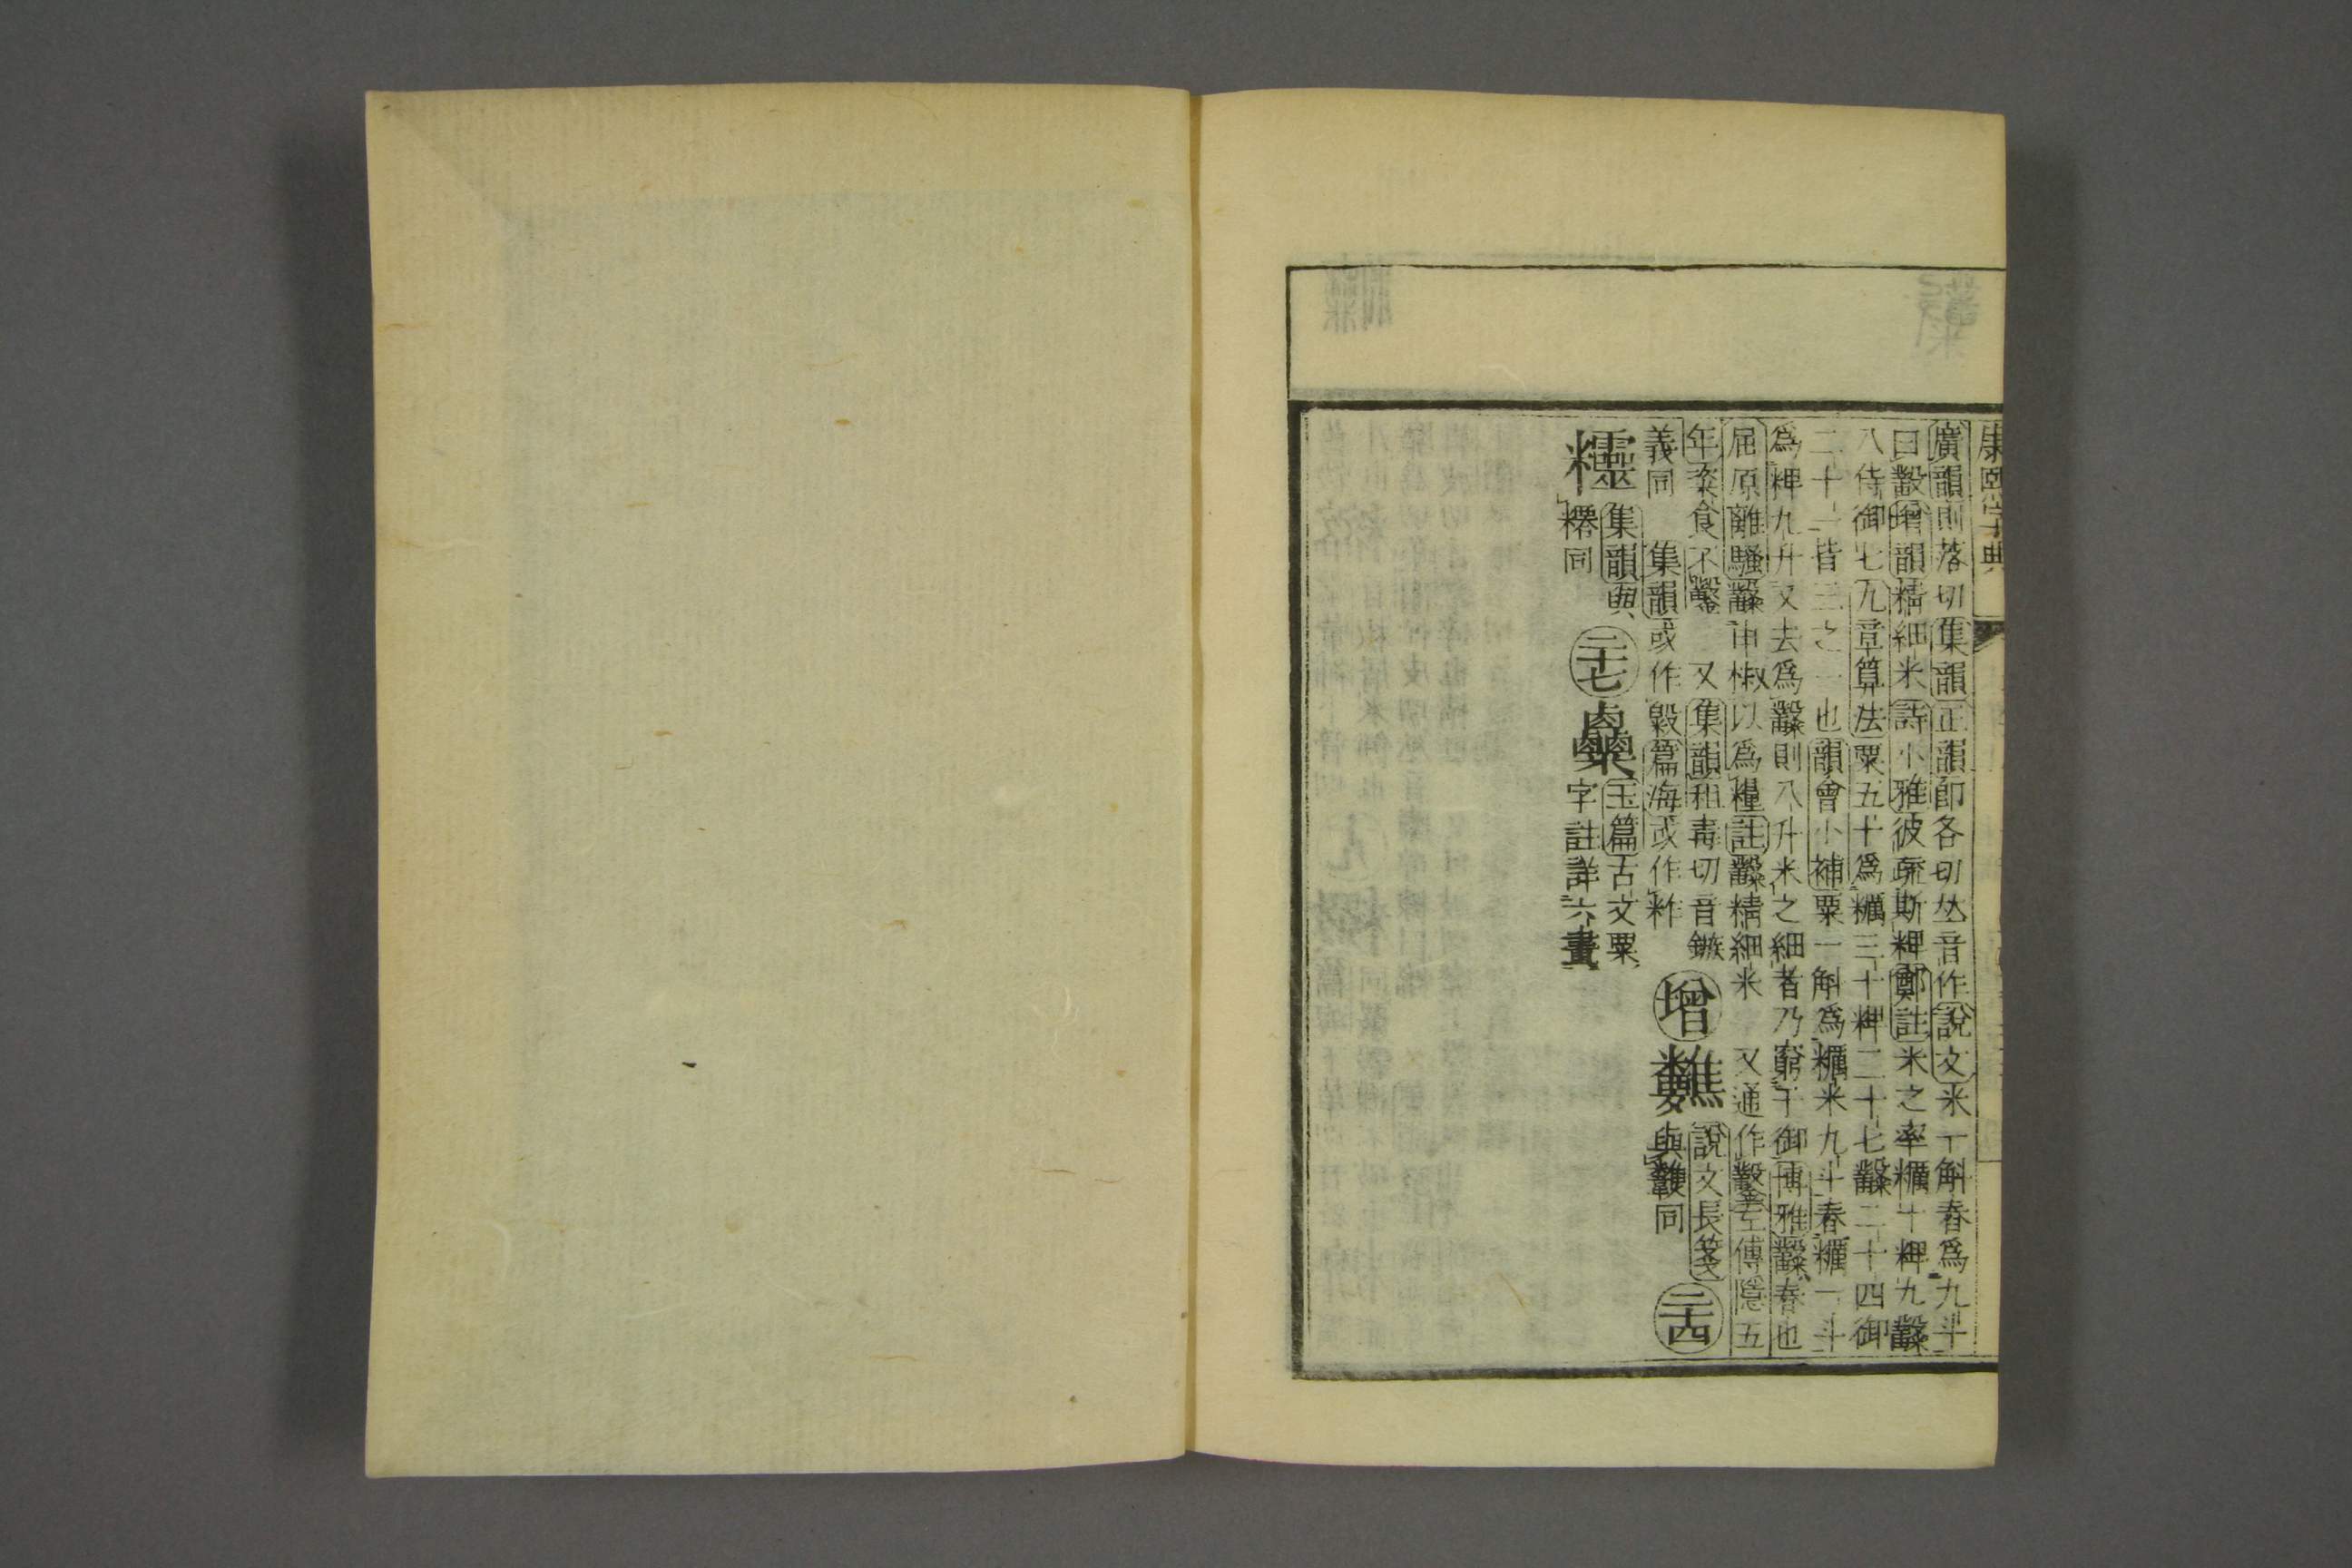 康熙字典
廣韻則落切集韻正韻卽各切𠀤音作說文米一斛舂爲九斗
曰糳增韻精細米詩小雅彼疏斯粺鄭註米之率糲十粺九糳
八侍御七九章算法粟五十爲糲三十粺二十七糳二十四御
二十一皆三之一也韻會小補粟一斛爲糲米九斗舂糲一斗
爲粺九升又去爲糳則八升米之細者乃窮于御博雅糳舂也
屈原離騷糳申椒以爲糧註糳精細米 又通作鑿左傳隱五
年粢食不鑿 又集韻租毒切音鏃
義同 集韻或作毇篇海或作糳
增
說文長箋
與 同
二十四
集韻與
同
二十七
玉篇古文粟
字註詳六畫